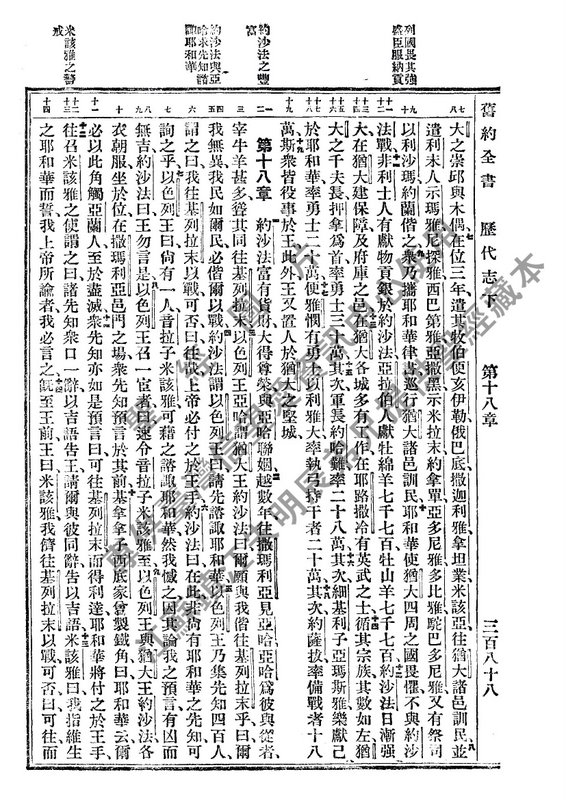 列國畏其強
盛臣服納貢
約沙法之豐
富
約沙法與亞
哈求先知諮
諏耶和華
米該雅之警
戒
舊約全書 歷代志下 第十八章 三百八十八
大之崇邱與木偶在位三年遣其牧伯便亥伊勒俄巴底撒迦利雅拿坦業米該亞往猶大諸邑訓民並
遣利未人示瑪雅尼探雅西巴第雅亞撒黑示米拉末約拿單亞多尼雅多比雅駝巴多尼雅又有祭司
以利沙瑪約蘭偕之衆乃攜耶和華律書巡行猶大諸邑訓民耶和華使猶大四周之國畏懼不與約沙
法戰非利士人有獻物貢銀於約沙法亞拉伯人獻牡綿羊七千七百牡山羊七千七百約沙法日漸強
大在猶大建保障及府庫之邑在猶大各城多有工作在耶路撒冷有英武之士循其宗族其數如左猶
大之千夫長押拿爲首率勇士三十萬其次軍長約哈難率二十八萬其次細基利子亞瑪斯雅樂獻己
於耶和華率勇士二十萬便雅憫有勇士以利雅大率執弓持干者二十萬其次約薩拔率備戰者十八
萬斯衆皆役事於王此外王又置人於猶大之堅城
第十八章 約沙法富有貨財大得尊榮與亞哈聯姻越數年往撒瑪利亞見亞哈亞哈爲彼與從者
宰牛羊甚多聳其同往基列拉末以色列王亞哈謂猶大王約沙法曰爾願與我偕往基列拉末乎曰爾
我無異我民如爾民必偕爾以戰約沙法謂以色列王曰請先諮諏耶和華以色列王乃集先知四百人
謂之曰我往基列拉末以戰可否曰往哉上帝必付之於王手約沙法曰在此非尚有耶和華之先知可
詢之乎以色列王曰尚有一人音拉子米該雅可藉之諮諏耶和華然我憾之因其論我之預言有凶而
無吉約沙法曰王勿言是以色列王召一宦者曰速令音拉子米該雅至以色列王與猶大王約沙法各
衣朝服坐於位在撒瑪利亞邑門之場衆先知預言於其前基拿拿子西底家曾製鐵角曰耶和華云爾
必以此角觸亞蘭人至於盡滅衆先知亦如是預言曰可往基列拉末而得利達耶和華將付之於王手
往召米該雅之使謂之曰諸先知衆口一辭以吉語告王請爾與彼同辭告以吉語米該雅曰我指維生
之耶和華而誓我上帝所諭者我必言之既至王前王曰米該雅我儕往基列拉末以戰可否曰可往而